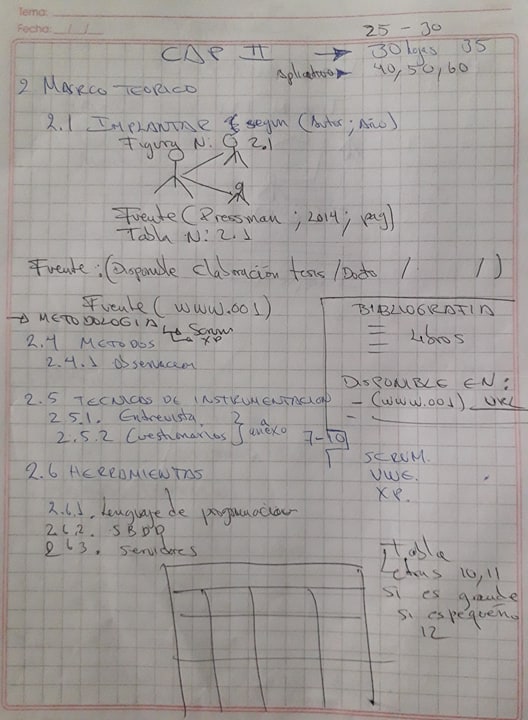 Tema:
Fecha: / /
25 - 30
CAP II → 30 hojas 35
Aplicativo → 40, 50, 60
2 MARCO TEORICO
2.1 IMPLANTAR según (Autor; Año)
Figura N: 2.1
Fuente (Pressman; 2014; pag)
Tabla N: 2.1
Fuente: (Disponible Elaboración tesis / Docto / / )
Fuente (www.001)
→ METODOLOGIA → Scrum
→ XP
2.4 METODOS
2.4.1 Observacion
2.5 TECNICAS DE INSTRUMENTACION
2.5.1. Entrevista
2.5.2 Cuestionarios } anexo
7-10
2.6 HERRAMIENTAS
2.6.1. Lenguaje de programacion
2.6.2. SBDD
2.6.3. Servidores
BIBLIOGRAFIA
Libros
DISPONIBLE EN:
- (www.001) URL
-
SCRUM.
UWE.
XP.
Tabla
Letras 10, 11
si es grande
si es pequeño
12